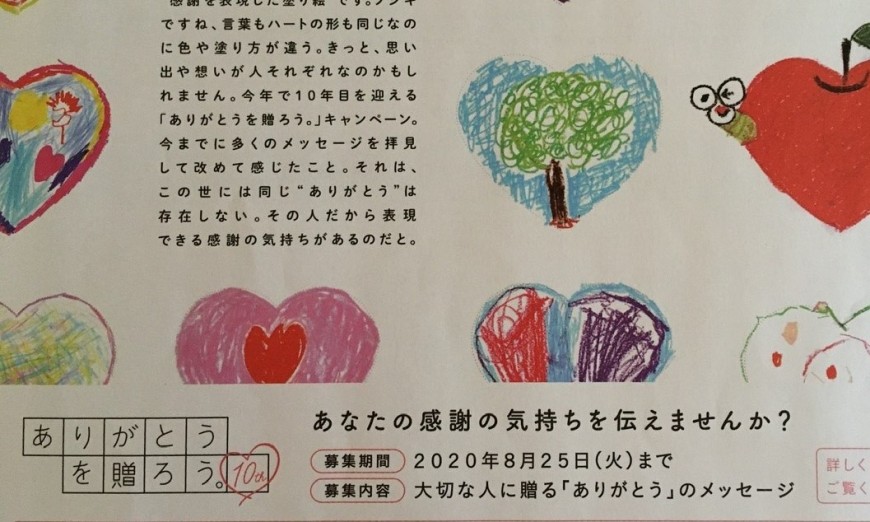 感謝を表現した塗り絵”です。フシギ
ですね、言葉もハートの形も同じなの
に色や塗り方が違う。きっと、思い
出や想いが人それぞれなのかもし
れません。今年で10年目を迎える
「ありがとうを贈ろう。」キャンペーン。
今までに多くのメッセージを拝見
して改めて感じたこと。それは、
この世には同じ“ありがとう”は
存在しない。その人だから表現
できる感謝の気持ちがあるのだと。
ありがとう
を贈ろう。
10th
あなたの感謝の気持ちを伝えませんか?
募集期間 2020年8月25日(火)まで
募集内容 大切な人に贈る「ありがとう」のメッセージ
詳しく
ご覧く